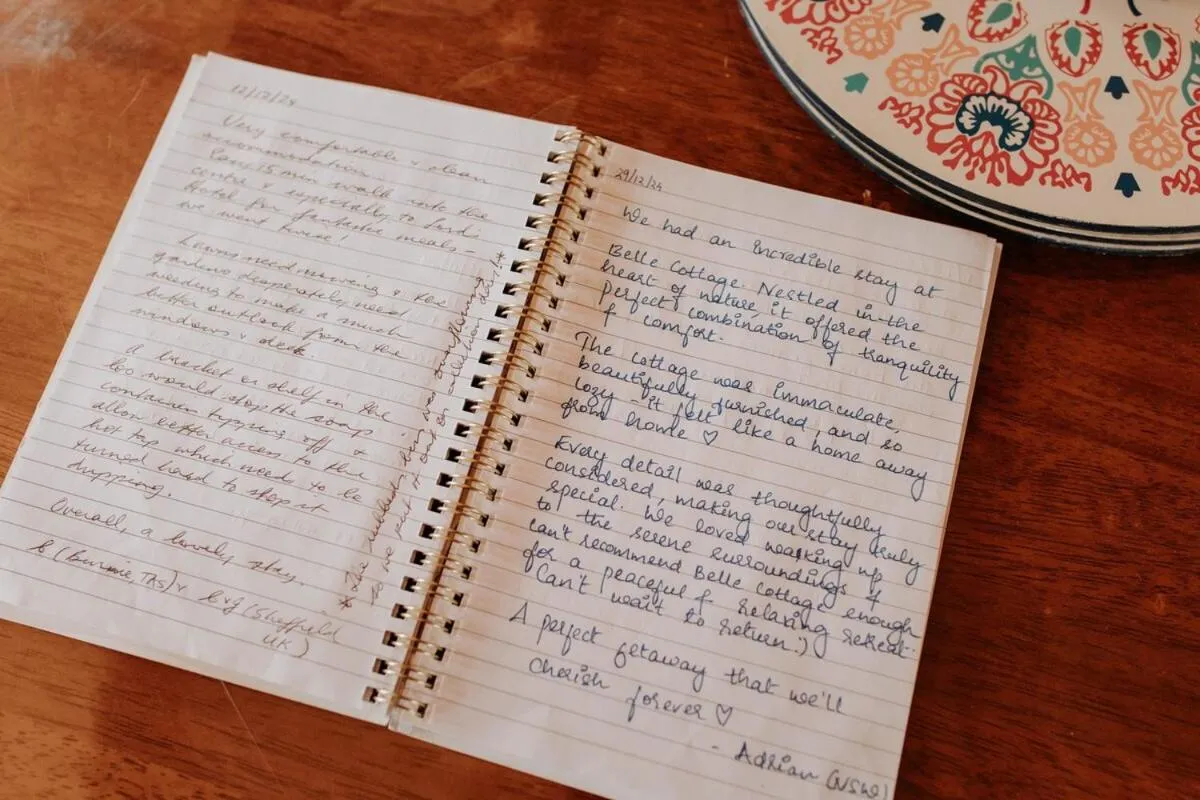 12/12/24
Very comfortable & clean
accommodation.
15 min walk into the
centre & especially to
Hotel for fantastic meals -
we went twice!
Lawns need mowing & the
gardens desperately need
weeding to make a much
better outlook from the
windows & deck.
A bracket or shelf in the
loo would stop the soap
container tipping off &
allow better access to the
hot tap which need to be
turned hard to stop it
dripping.
Overall, a lovely stay.
(Burnie, TAS) & (Sheffield
UK)
* The rubbish bin was overflowing
so we put it out on collection day! *
29/12/24
We had an incredible stay at
Belle Cottage. Nestled in the
heart of nature, it offered the
perfect combination of tranquility
& comfort.
The cottage was immaculate,
beautifully furnished, and so
cozy it felt like a home away
from home ♡
Every detail was thoughtfully
considered, making our stay truly
special. We loved waking up
to the serene surroundings &
can't recommend Belle Cottage enough
for a peaceful & relaxing retreat.
Can't wait to return :)
A perfect getaway that we'll
cherish forever ♡
- Adrian (NSW)